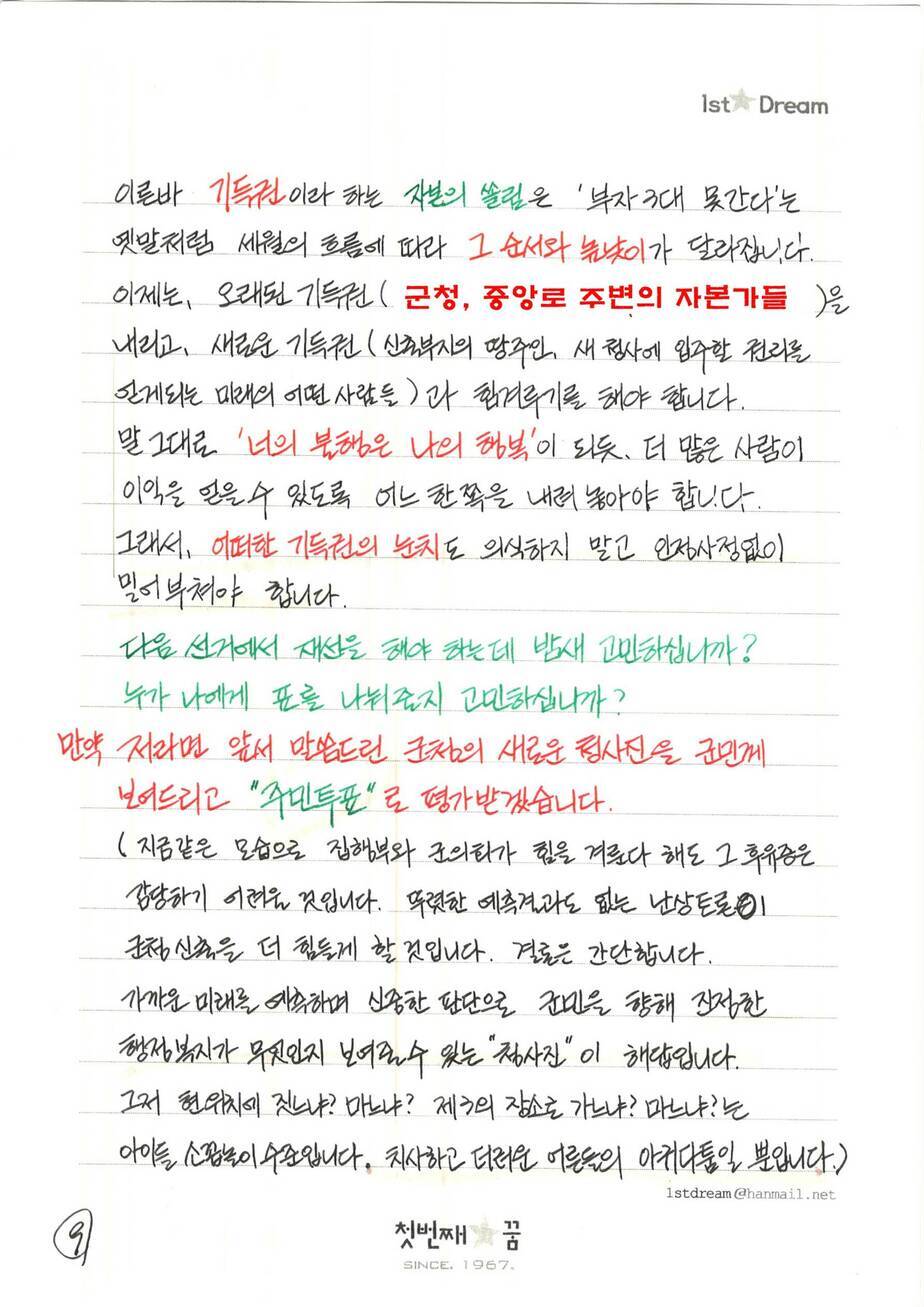 1st Dream
이른바 기득권이라 하는 자본의 쏠림은 '부자3대 못간다'는
옛말처럼 세월의 흐름에 따라 그 순서와 높낮이가 달라집니다.
이제는, 오래된 기득권( 군청, 중앙로 주변의 자본가들 )을
내리고, 새로운 기득권(신축부지의 땅주인, 새 청사에 입주할 권리를
얻게되는 미래의 어떤 사람들)과 힘겨루기를 해야 합니다.
말 그대로 '너의 불행은 나의 행복'이 되듯, 더 많은 사람이
이익을 얻을 수 있도록 어느 한쪽을 내려 놓아야 합니다.
그래서, 어떠한 기득권의 눈치도 의식하지 말고 인정사정없이
밀어부쳐야 합니다.
다음 선거에서 재선을 해야 하는데 밤새 고민하십니까?
누가 나에게 표를 나눠줄지 고민하십니까?
만약 저라면 앞서 말씀드린 군청의 새로운 청사진을 군민께
보여드리고 "주민투표"로 평가받겠습니다.
(지금같은 모습으로 집행부와 군의회가 힘을 겨룬다 해도 그 후유증은
감당하기 어려울 것입니다. 뚜렷한 예측결과도 없는 난상토론이
군청신축을 더 힘들게 할 것입니다. 결론은 간단합니다.
가까운 미래를 예측하며 신중한 판단으로 군민을 향해 진정한
행정복지가 무엇인지 보여줄 수 있는 "청사진"이 해답입니다.
그저 현위치에 짓느냐? 마느냐? 제3의 장소로 가느냐? 마느냐?는
아이들 소꿉놀이 수준입니다. 치사하고 더러운 어른들의 아귀다툼일 뿐입니다.)
1stdream@hanmail.net
9
첫번째 꿈
SINCE. 1967.